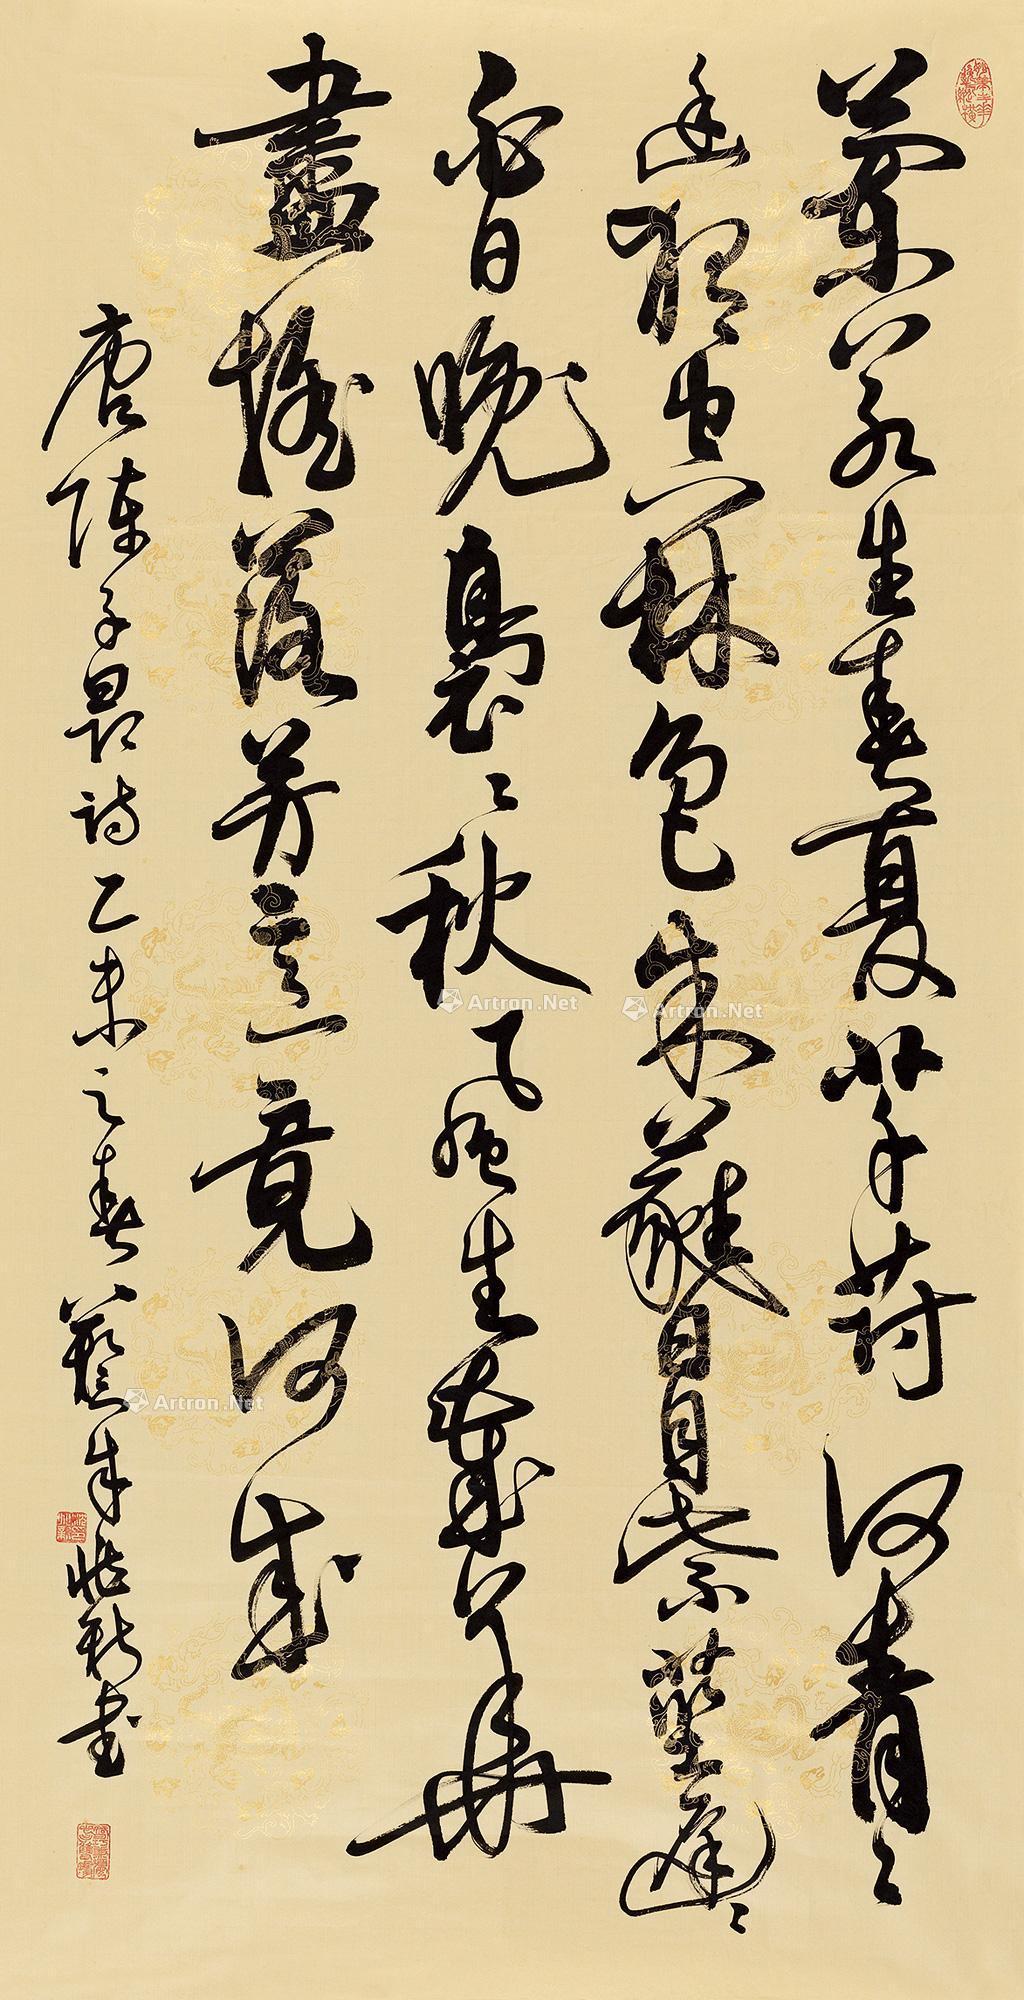 蘭若生春夏芊蔚何青青
幽獨空林色朱蕤冒紫莖遲遲
白日晚裊裊秋風生歲華
盡搖落芳意竟何成
唐陳子昂詩乙未之春
書
Artron.Net
Artron.Net
Artron.Net